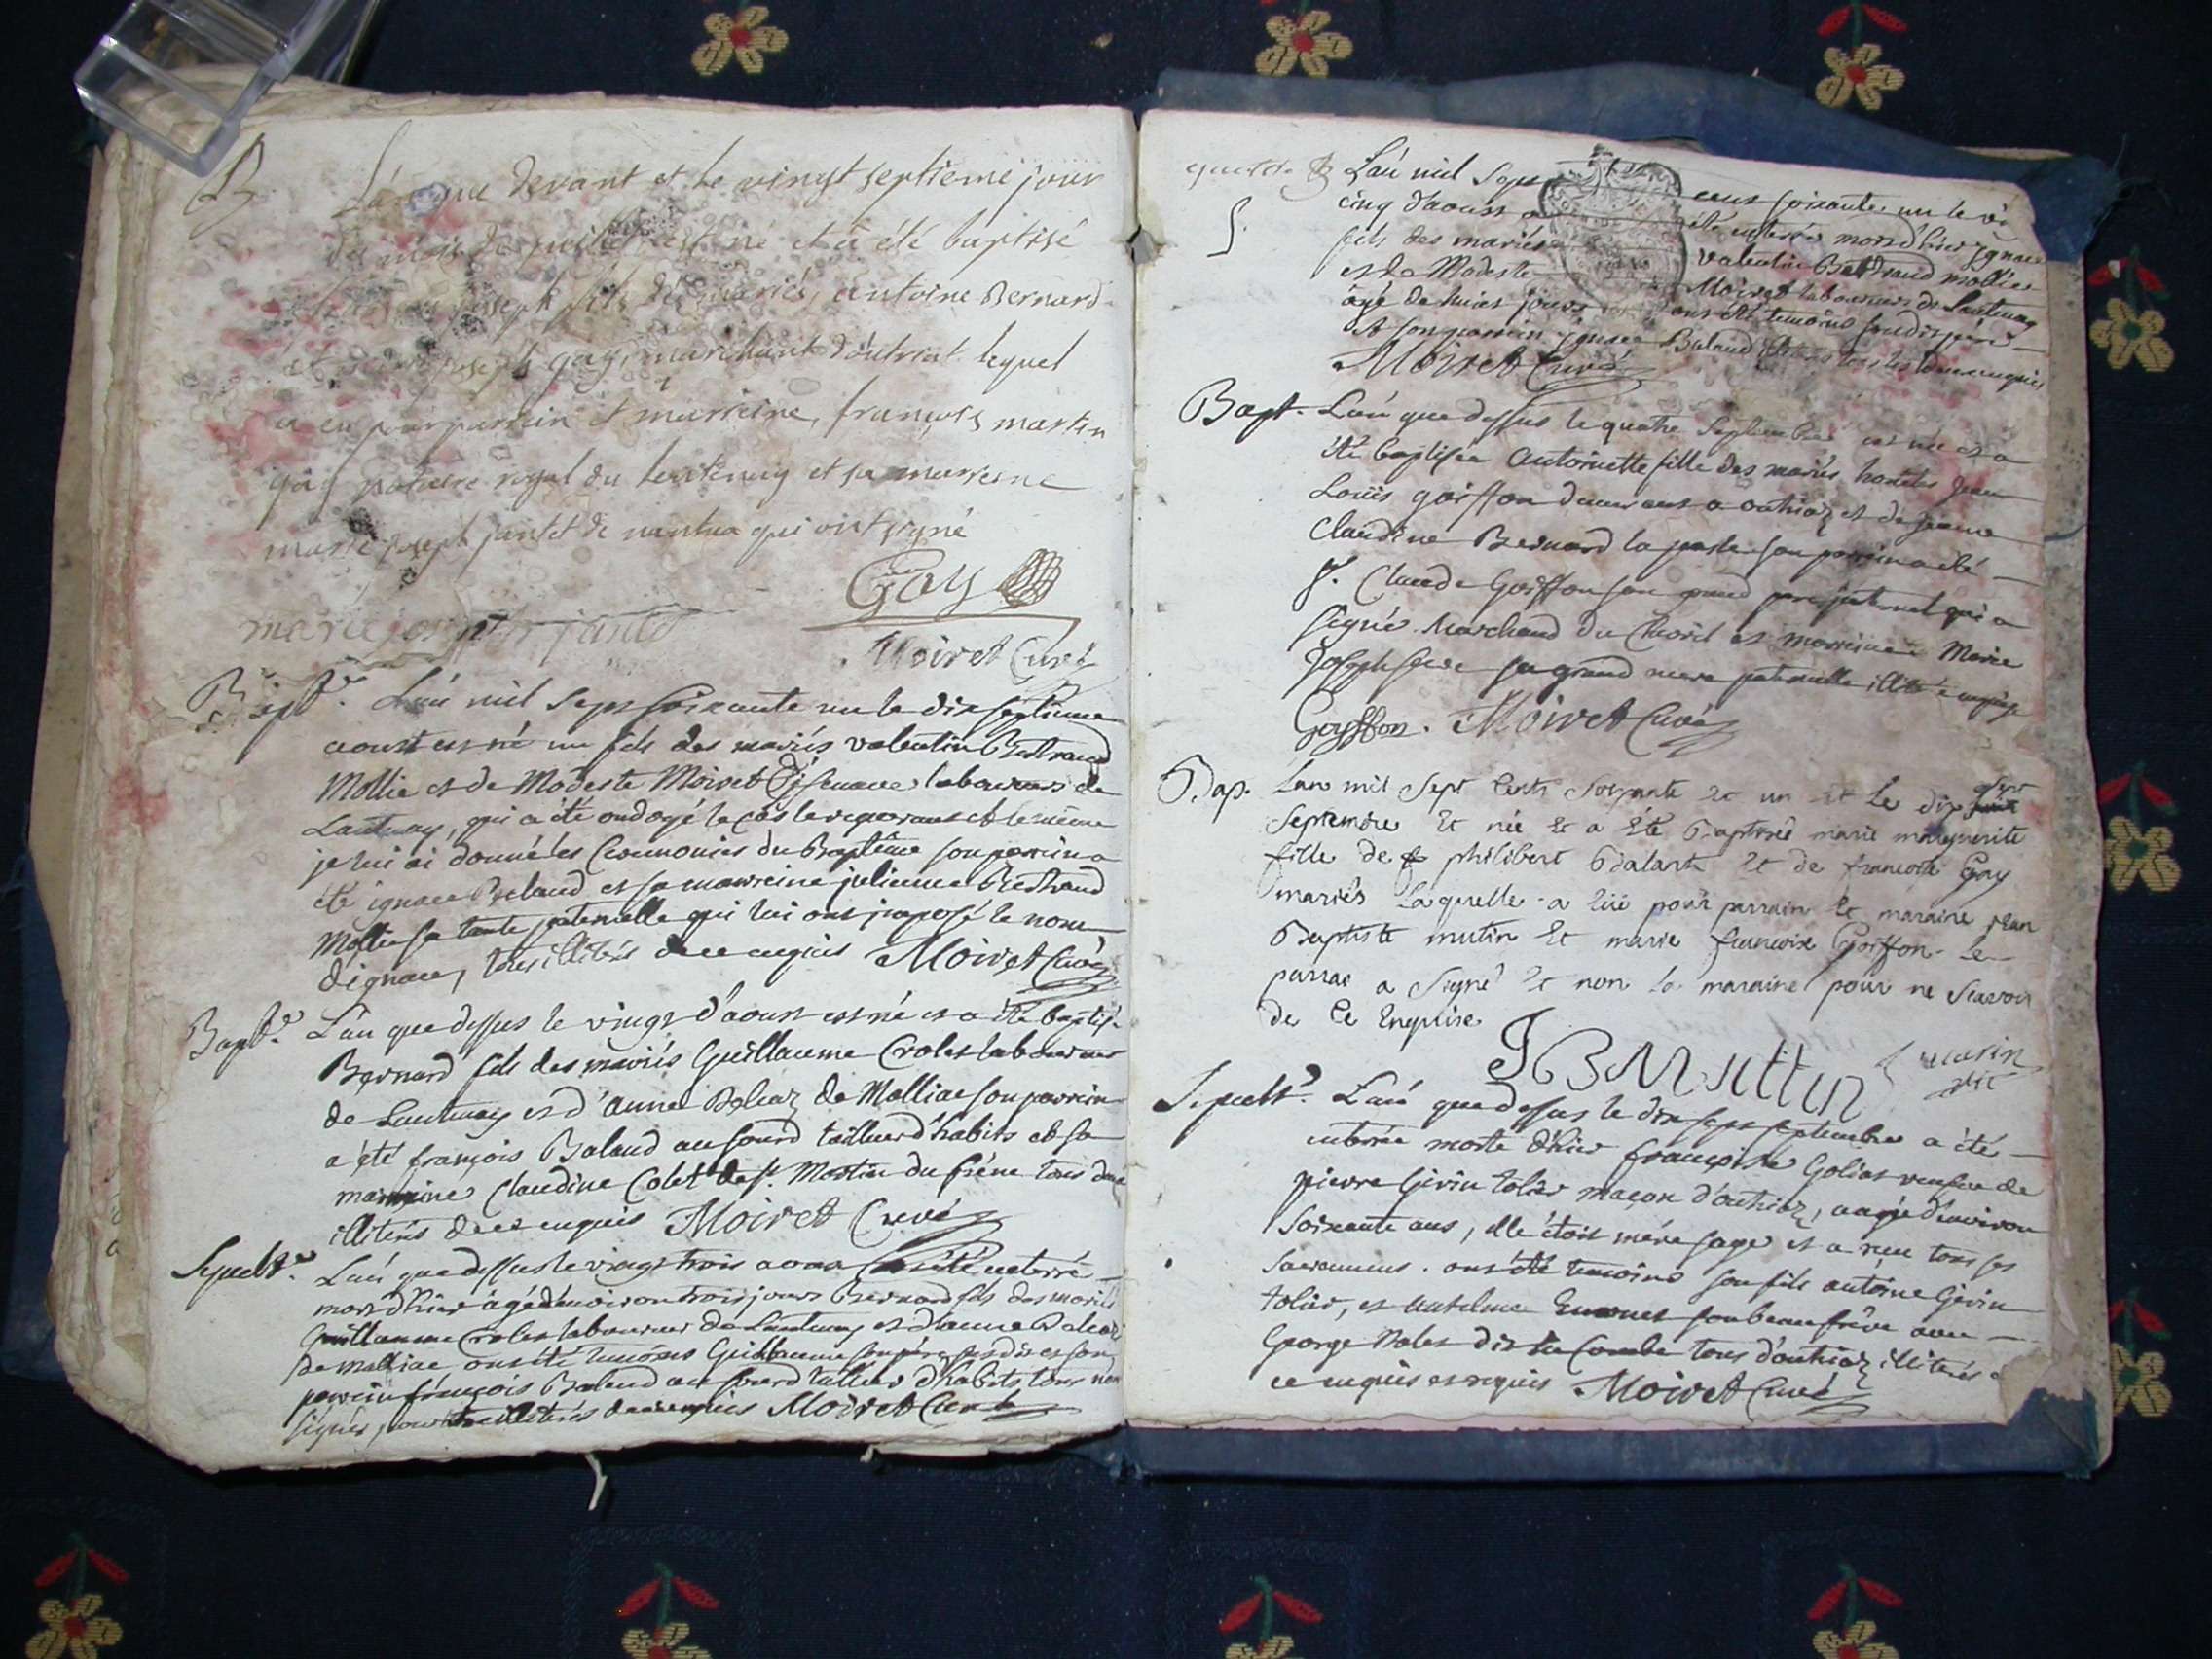 B
L'an que devant et le vingt septieme jour
du mois de juillet est né et a été baptisé
joseph fils des mariés, antoine Bernard
joseph gay, marchand d'outriat lequel
a eu pour parrein et marreine, françois martin
gay notaire royal du lentenay et sa marreine
marie joseph jantet de nantua qui ont signé
Gay
marie joseph jantet
Moiret Curé
Bapt.e L'an mil sept soixante un le dix septieme
aoust est né un fils des mariés valentin Bertrand
Mollie et de Modeste Moiret laboureurs de
Lantenay, qui a été ondoyé le cas le requerant et le même
je lui ai donné les Ceremonies du Baptême son parrein a
été ignace Balaud et sa marreine julienne Bertrand
Mollie sa tante paternelle qui lui ont imposé le nom
d'ignace, tous illitérés de ce enquis Moiret Curé
Bapt.e L'an que dessus le vingt d'aoust est né et a été baptisé
Bernard fils des mariés Guillaume Crolet laboureur
de Lantenay et d'anne de Malliac son parrein
a été françois Balaud au sourd tailleur d'habits et sa
marreine Claudine Colet de st. Martin du frêne tous deux
illitérés de ce enquis Moiret Curé
Sepult.e L'an que dessus le vingt trois aoust a été enterré
mort d'hier âgé d'environ trois jours Bernard fils des mariés
Guillaume Crolet laboureur de Lantenay et d'anne
de malliac ont été temoins Guillaume son père susdit et son
parrein françois Balaud au sourd tailleur d'habits tous non
signés, pour être illitérés de ce enquis Moiret Curé
L'an mil sept cent soixante un le vi
S. cinq d'aoust a été enterré mort d'hier ignace
fils des mariés valentin Bertrand mollie
et de Modeste Moiret laboureurs de Lantenay
âgé de huit jours ont été temoins sondit père
et son parrein ignace Balaud illitérés tous les deux enquis
Moiret Curé
Bapt. L'an que dessus le quatre septembre est née et a
été baptisée Antoinette fille des mariés honetes Jean
Louis goiffon demeurant a outriaz et de jeanne
Claudine Bernard la poste son parrein a été
J. Claude Goiffon son grand pere paternel qui a
signé Marchand du et marreine Marie
Joseph sa grand mere paternelle illitérée enquise
Goyffon. Moiret Curé
Bap. Lan mil sept Cents Soixante et un et le dix sept
Septembre Et née Et a Eté Baptisée marie marguerite
fille de philibert Balant Et de francoise Gay
mariés Laquelle a Eüe pour parrain Et maraine jean
Baptiste mutin Et marie francoise Goiffon Le
parrae a Signé Et non la maraine pour ne Scavoir
de Ce Enquise
JBMuttin
Sepult.e L'an que dessus le dix sept septembre a été
enterrée morte d'hier françoise Golias veufve de
pierre Givin tolier maçon d'outriaz, aagée d'environ
soixante ans, elle étoit mère sage et a reçu tous ses
sacremens. ont été temoins son fils antoine Givin
tolier, et antelme son beau frère avec
George dit la Combe tous d'outriaz illitérés
ce enquis et requis Moiret Curé